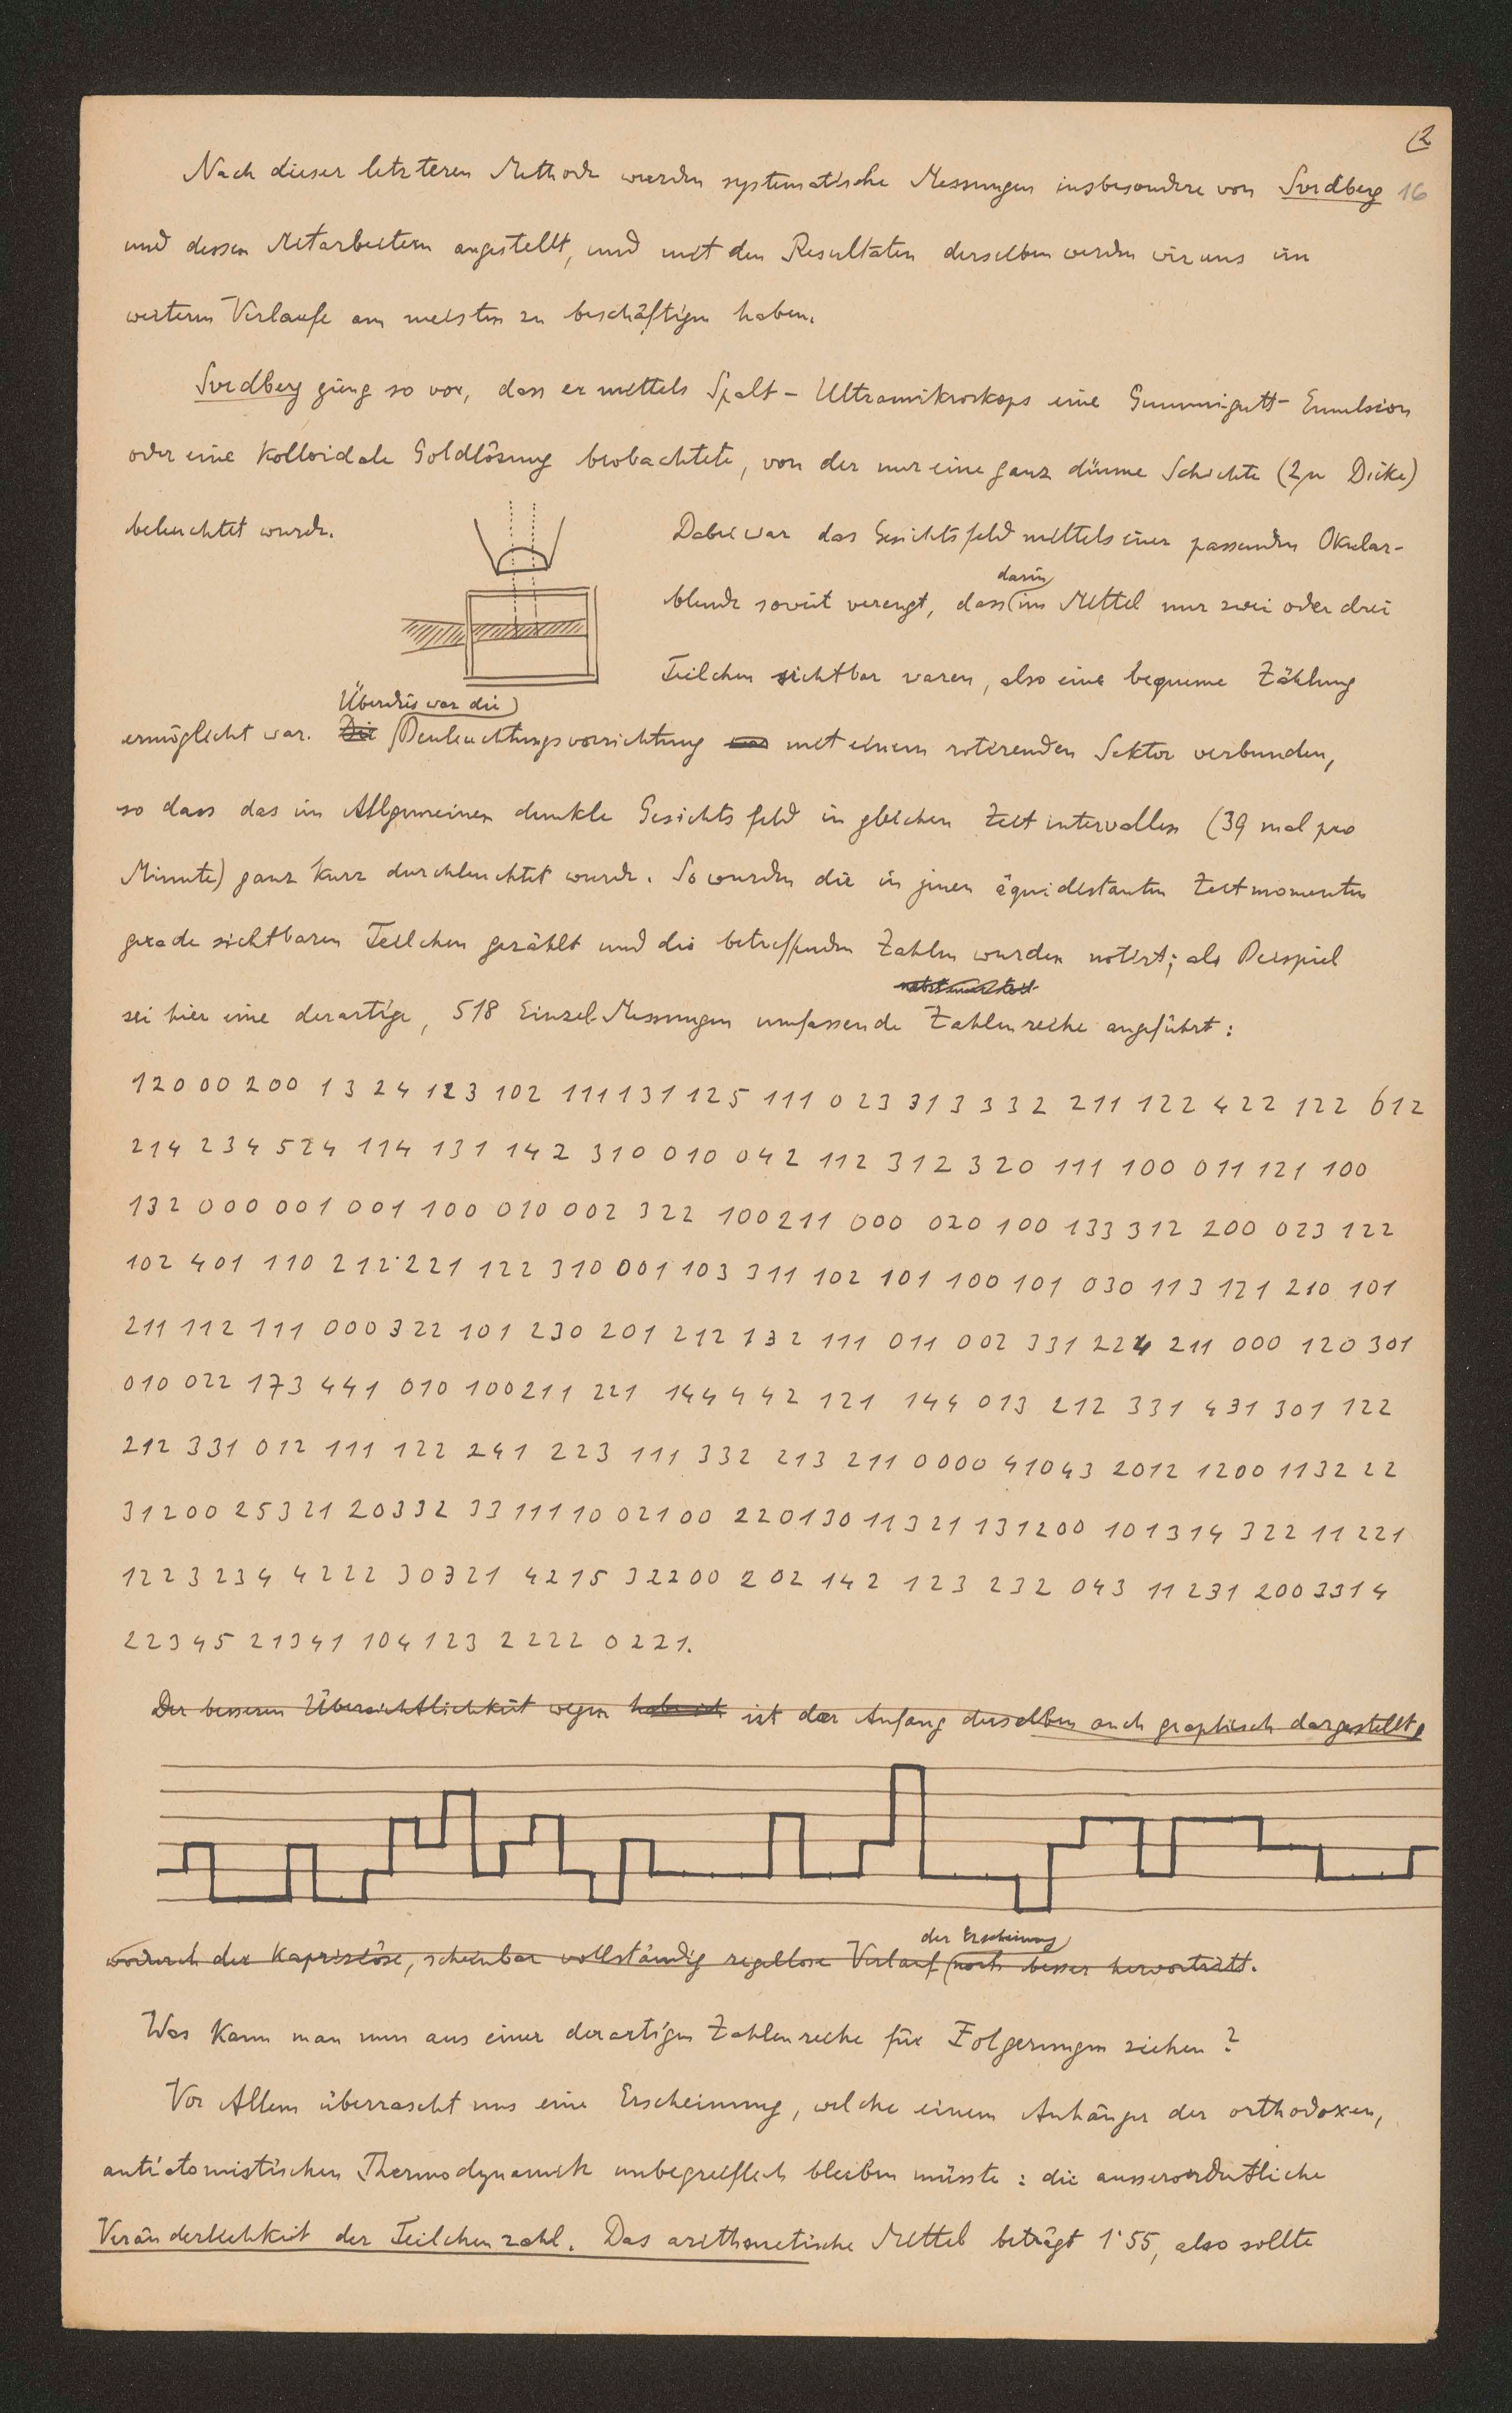 12
Nach dieser letzteren Methode wurden systematische Messungen insbesondere von Svedberg 16
und dessen Mitarbeitern angestellt, und mit den Resultaten derselben werden wir uns im
weiteren Verlaufe am meisten zu beschäftigen haben.
Svedberg ging so vor, dass er mittels Spalt-Ultramikroskops eine Gummigutt-Emulsion
oder eine kolloidale Goldlösung beobachtete, von der nur eine ganz dünne Schichte (2μ Dicke)
beleuchtet wurde. Dabei war das Gesichtsfeld mittels einer passenden Okular-
darin
blende soweit verengt, dass im Mittel nur zwei oder drei
Teilchen sichtbar waren, also eine bequeme Zählung
Überdies war die
ermöglicht war. Die Beuleuchtungsvorrichtung war mit einem rotirenden Sektor verbunden,
so dass das im Allgemeinen dunkle Gesichtsfeld in gleichen Zeitintervallen (39 mal pro
Minute) ganz kurz durchleuchtet wurde. So wurden die in jenen äquidistanten Zeitmomenten
gerade sichtbaren Teilchen gezählt und die betreffenden Zahlen wurden notirt; als Beispiel
sei hier eine derartige, 518 Einzel-Messungen umfassende Zahlenreihe angeführt:
12000 200 13 24 123 102 111131 125 111 023 313 332 211 122 422 122 612
214 234 524 114 131 142 310 010 042 112 312 320 111 100 011 121 100
132 000 001 001 100 010 002 322 100211 000 020 100 133 312 200 023 122
102 401 110 212 221 122 310 001 103 311 102 101 100 101 030 113 121 210 101
211 112 111 000 322 101 230 201 212 132 111 011 002 331 224 211 000 120 301
010 022 173 441 010 100211 221 144 442 121 144 013 212 331 431 301 122
212 331 012 111 122 241 223 111 332 213 211 0000 41043 2012 1200 1132 22
31200 25321 20332 33 111 10 02100 220130 11321 131200 101314 322 11 221
1223234 4222 30321 4215 32200 202 142 123 232 043 11 231 200 3314
22345 21341 104123 2222 0221.
Der besseren Übersichtlichkeit wegen habe ich ist der Anfang derselben auch graphisch dargestellt,
der Erscheinung
wodurch der kapriziöse, scheinbar vollständig regellose Verlauf noch besser hervortritt.
Was kann man nun aus einer derartigen Zahlenreihe für Folgerungen ziehen?
Vor Allem überrascht uns eine Erscheinung, welche einem Anhänger der orthodoxen,
antiatomistischen Thermodynamik unbegreiflich bleiben müsste: die ausserordentliche
Veränderlichkeit der Teilchenzahl. Das arithmetische Mittel beträgt 1·55, also sollte